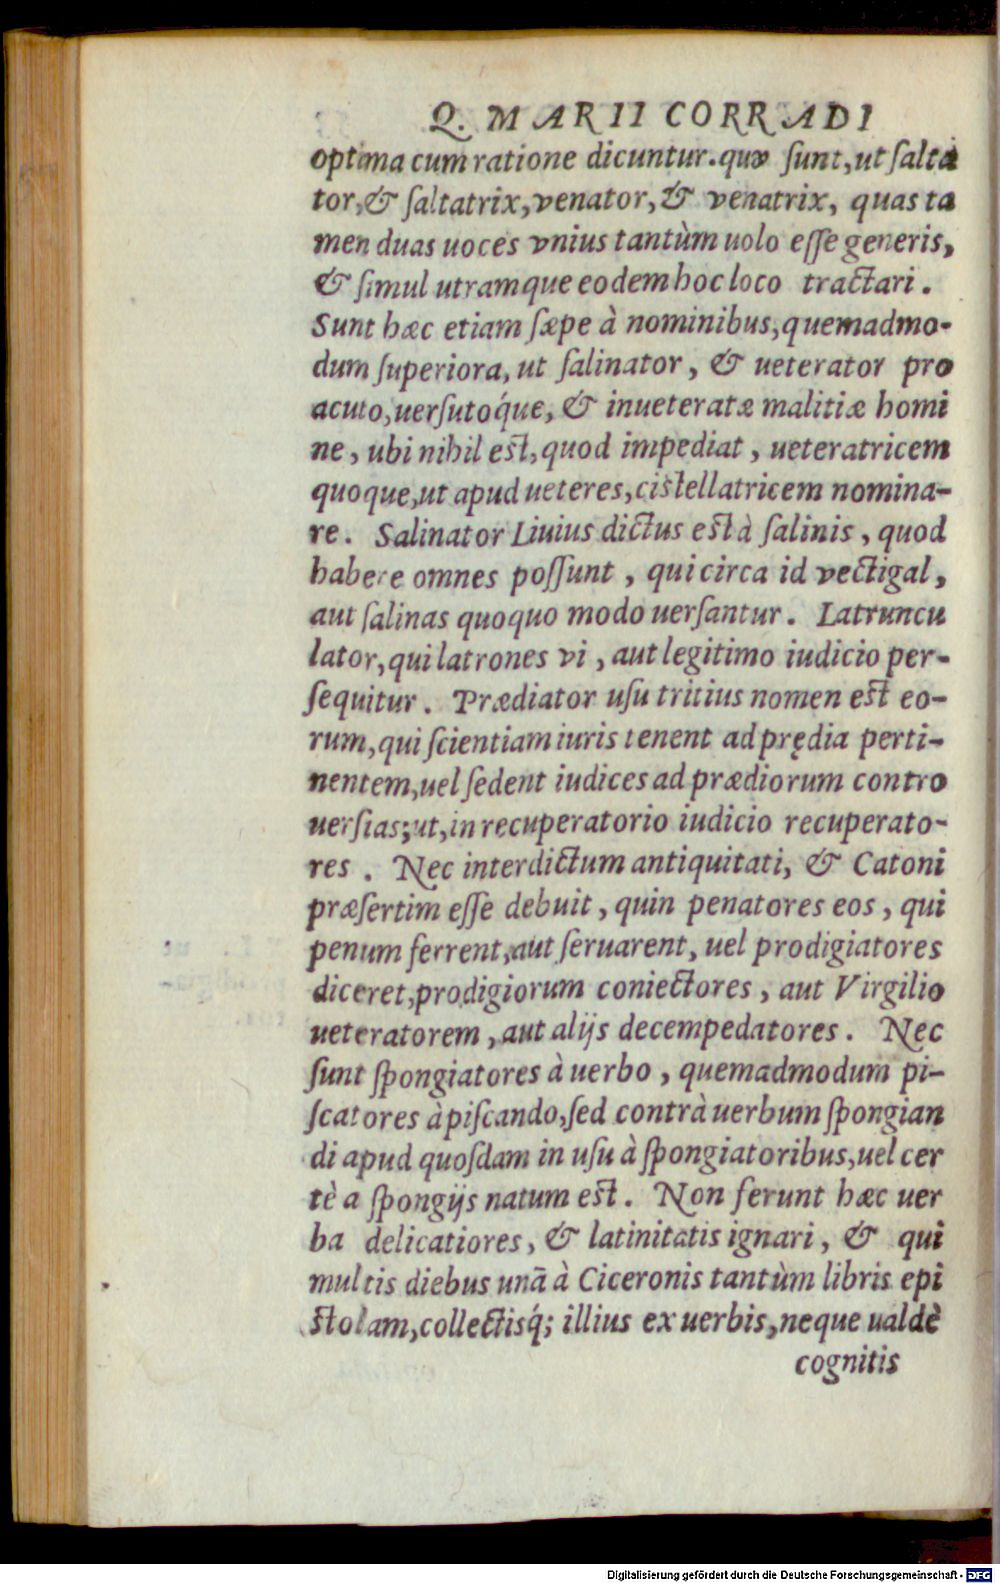 Q. MARII CORRADI
optima cum ratione dicuntur. quæ ſunt, ut ſalta
tor, & ſaltatrix, venator, & venatrix, quas ta
men duas uoces vnius tantùm uolo eſſe generis,
& ſimul utramque eodem hoc loco tractari.
Sunt hæc etiam ſæpe à nominibus, quemadmo-
dum ſuperiora, ut ſalinator, & ueterator pro
acuto, uerſutoq́ue, & inueteratæ malitiæ homi
ne, ubi nihil eſt, quod impediat, ueteratricem
quoque, ut apud ueteres, ciſtellatricem nomina-
re. Salinator Liuius dictus eſt à ſalinis, quod
habere omnes poſſunt, qui circa id vectigal,
aut ſalinas quoquo modo uerſantur. Latruncu
lator, qui latrones vi, aut legitimo iudicio per-
ſequitur. Prædiator uſu tritius nomen eſt eo-
rum, qui ſcientiam iuris tenent ad prędia perti-
nentem, uel ſedent iudices ad prædiorum contro
uerſias; ut, in recuperatorio iudicio recuperato-
res. Nec interdictum antiquitati, & Catoni
præſertim eſſe debuit, quin penatores eos, qui
penum ferrent, aut ſeruarent, uel prodigiatores
diceret, prodigiorum coniectores, aut Virgilio
ueteratorem, aut alijs decempedatores. Nec
ſunt ſpongiatores à uerbo, quemadmodum pi-
ſcatores à piſcando, ſed contrà uerbum ſpongian
di apud quoſdam in uſu à ſpongiatoribus, uel cer
tè a ſpongijs natum eſt. Non ferunt hæc uer
ba delicatiores, & latinitatis ignari, & qui
multis diebus unā à Ciceronis tantùm libris epi
ſtolam, collectisq́; illius ex uerbis, neque ualdè
cognitis
Digitalisierung gefördert durch die Deutsche Forschungsgemeinschaft - DFG